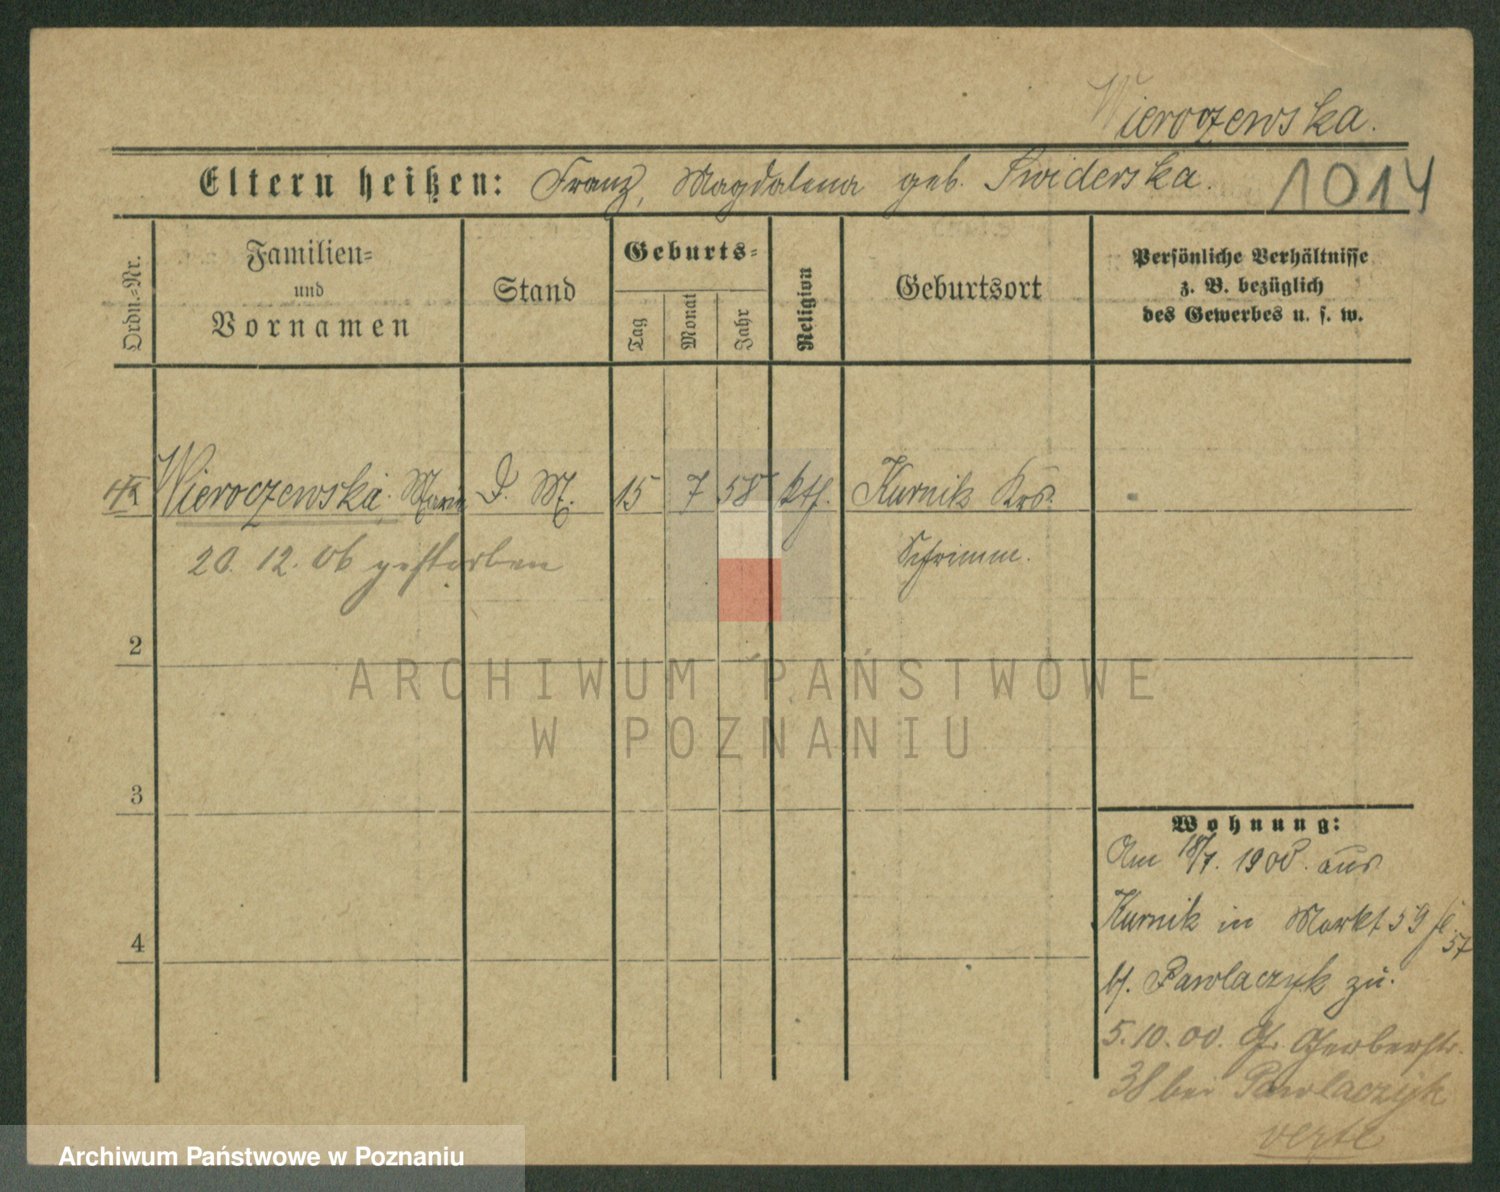 Wieroczewska.
Eltern heißen: Franz, Magdalena geb. Swiderska. 1014
Ordn.-Nr.
Familien- und Vornamen
Stand
Geburts-
Tag
Monat
Jahr
Religion
Geburtsort
Persönliche Verhältnisse
z. B. bezüglich
des Gewerbes u. s. w.
Wieroczewska Maria D. M. 15 7 58 kth. Kurnik Krs.
Schrimm.
20. 12. 06 gestorben
2
3
4
Wohnung:
Am 18/7. 1900. aus
Kurnik in Markt 59
57
b. Pawlaczyk zu.
5.10.00. Gr. Gerberstr.
38 bei Pawlaczyk
verte
ARCHIWUM PAŃSTWOWE
W POZNANIU
Archiwum Państwowe w Poznaniu